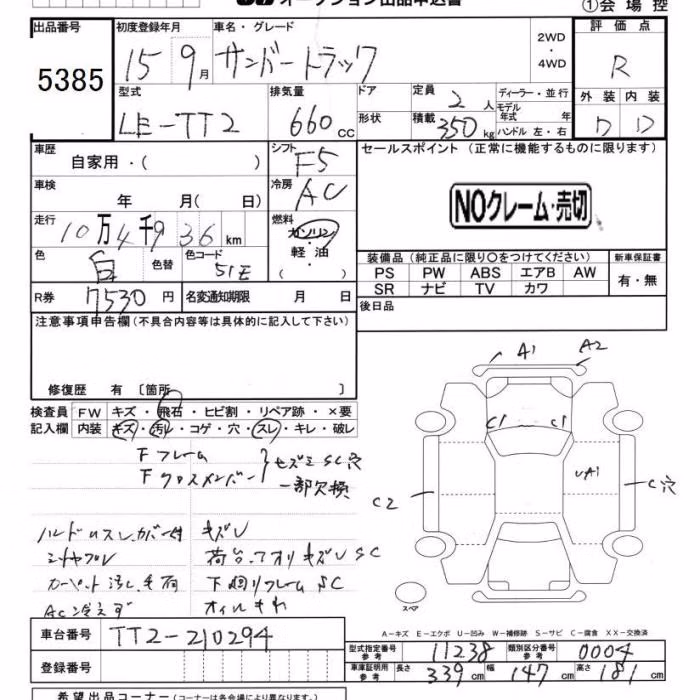 オークション出品申込書
①会場控
出品番号 初度登録年月 車名・グレード 2WD・4WD 評価点
5385 15 9月 サンバートラック R
型式 排気量 ドア 定員 2人 ディーラー・並行 外装 内装
LE-TT2 660cc 形状 積載 350kg モデル年式 年 ハンドル 左・右 D D
車歴 自家用・( ) シフト F5 セールスポイント (正常に機能するものに限ります)
車検 年 月( 日) 冷房 AC
NOクレーム・売切
走行 10万4千936km 燃料 ガソリン 軽油 ( )
色 白 色替 色コード 51E
装備品 (純正品に限り〇をつけてください) 新車保証書
PS PW ABS エアB AW 有・無
SR ナビ TV カワ
R券 7530円 名変通知期限 月 日 後日品
注意事項申告欄 (不具合内容等は具体的に記入して下さい)
修復歴 有 〔箇所 〕
検査員記入欄 FW キズ・飛石・ヒビ割・リペア跡・×要
内装 キズ・汚レ・コゲ・穴・スレ・キレ・破レ
A1 A2
C1 C1
UA1
C2 C穴
Fフレーム
Fクロスメンバー
サビSC穴
一部欠損
ハンドルスレ.カバー付 キズU
シートヤブレ 荷台.アオリキズUSC
下回リフレームSC
AC冷えず オイルもれ
スペア
A-キズ E-エクボ U-凹み W-補修跡 S-サビ C-腐食 XX-交換済
車台番号 TT2-210294
型式指定番号 参考 11238 類別区分番号 参考 0004
登録番号
車庫証明用 参考 長さ 339cm 幅 147cm 高さ 181cm
希望出品コーナー (コーナーは各会場により異なります。)